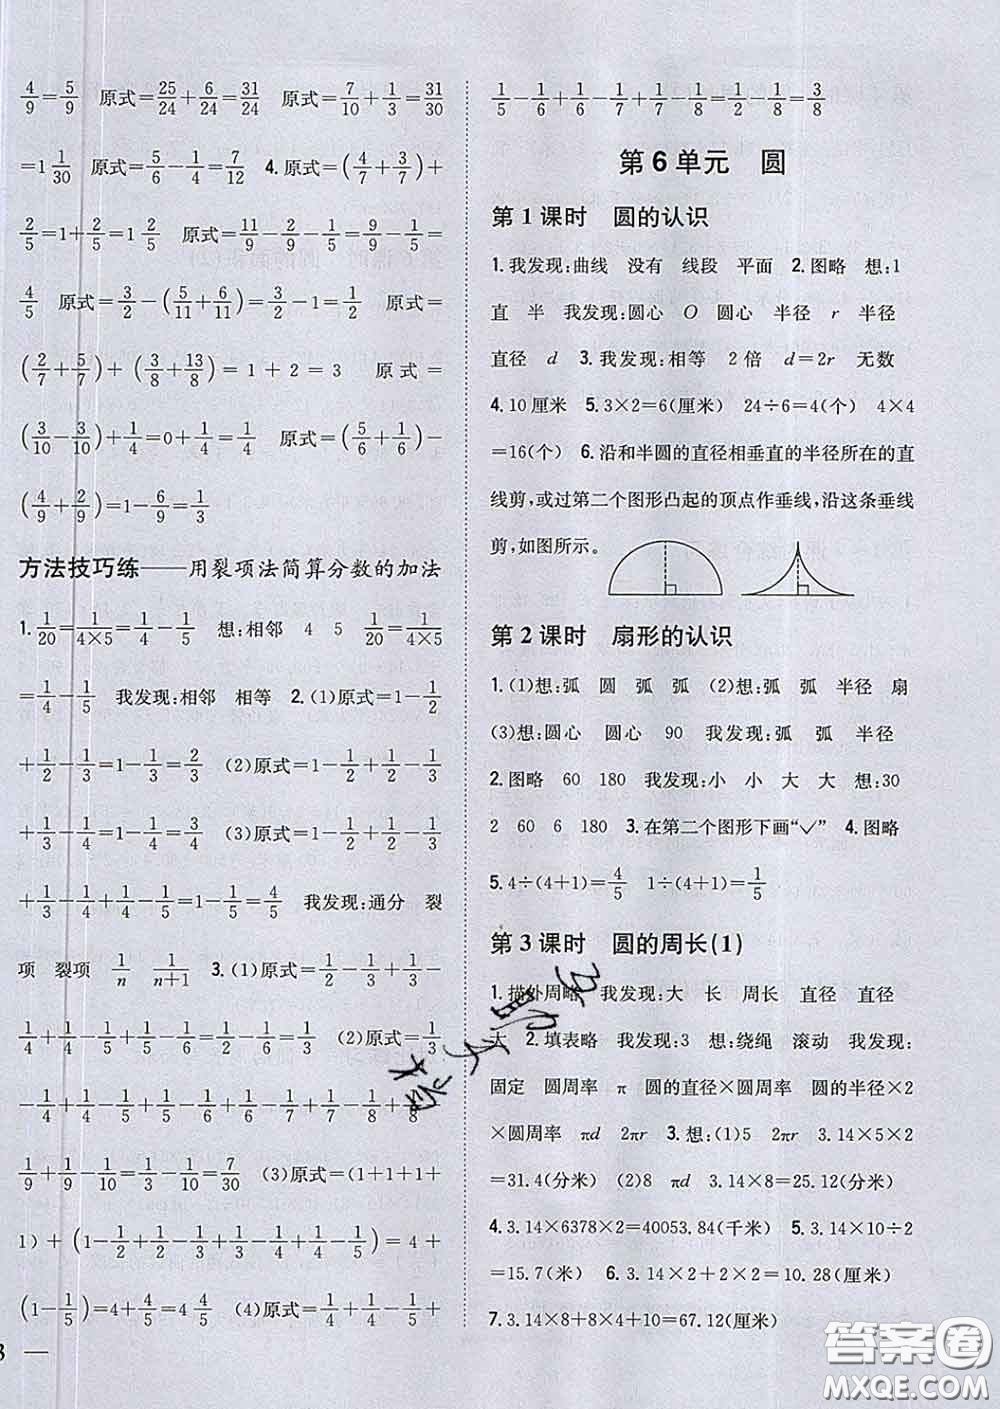 4/9=5/9 原式=25/24+6/24=31/24 原式=7/10+1/3=31/30
=1 1/30 原式=5/6-1/4=7/12 4.原式=(4/7+3/7)+
2/5=1+2/5=1 2/5 原式=11/9-2/9-1/5=9/9-1/5=
4/5 原式=3/2-(5/11+6/11)=3/2-1=1/2 原式=
(2/7+5/7)+(3/8+13/8)=1+2=3 原式=
(3/10-3/10)+1/4=0+1/4=1/4 原式=(5/6+1/6)-
(4/9+2/9)=1-6/9=1/3
方法技巧练——用裂项法简算分数的加法
1.1/20=1/(4×5)=1/4-1/5 想:相邻 4 5 1/20=1/(4×5)
=1/4-1/5 我发现:相邻 相等 2.(1)原式=1-1/2
+1/2-1/3=1-1/3=2/3 (2)原式=1-1/2+1/2-1/3
+1/3-1/4=1-1/4=3/4 (3)原式=1-1/2+1/2-1/3
+1/3-1/4+1/4-1/5=1-1/5=4/5 我发现:通分 裂
项 裂项 1/n 1/(n+1) 3.(1)原式=1/2-1/3+1/3-
1/4+1/4-1/5+1/5-1/6=1/2-1/6=1/3 (2)原式=1/3
-1/4+1/4-1/5+1/5-1/6+1/6-1/7+1/7-1/8+1/8-
1/9+1/9-1/10=1/3-1/10=7/30 (3)原式=(1+1+1+
1)+(1-1/2+1/2-1/3+1/3-1/4+1/4-1/5)=4+
(1-1/5)=4+4/5=4 4/5 (4)原式=1/2-1/3+1/3-1/4+1/4-
1/5+1/5-1/6+1/6-1/7+1/7-1/8=1/2-1/8=3/8
第6单元 圆
第1课时 圆的认识
1.我发现:曲线 没有 线段 平面 2.图略 想:1
直 半 我发现:圆心 O 圆心 半径 r 半径
直径 d 3.我发现:相等 2倍 d=2r 无数
4.10厘米 5.3×2=6(厘米) 24÷6=4(个) 4×4
=16(个) 6.沿和半圆的直径相垂直的半径所在的直
线剪,或过第二个图形凸起的顶点作垂线,沿这条垂线
剪,如图所示。
第2课时 扇形的认识
1.(1)想:弧 圆 弧 弧 (2)想:弧 弧 半径 扇
(3)想:圆心 圆心 90 我发现:弧 弧 半径
2.图略 60 180 我发现:小 小 大 大 想:30
2 60 6 180 3.在第二个图形下画“✓” 4.图略
5.4÷(4+1)=4/5 1÷(4+1)=1/5
第3课时 圆的周长(1)
1.描外周略 我发现:大 长 周长 直径 直径
大 2.填表略 我发现:3 想:绕绳 滚动 我发现:
固定 圆周率 π 圆的直径×圆周率 圆的半径×2
×圆周率 πd 2πr 3.想:(1)5 2πr 3.14×5×2
=31.4(分米) (2)8 πd 3.14×8=25.12(分米)
4.3.14×6378×2=40053.84(千米) 5.3.14×10÷2
=15.7(米) 6.3.14×2+2×2=10.28(厘米)
7.3.14×8+8×4+10=67.12(厘米)
答案圈
MXQE.COM